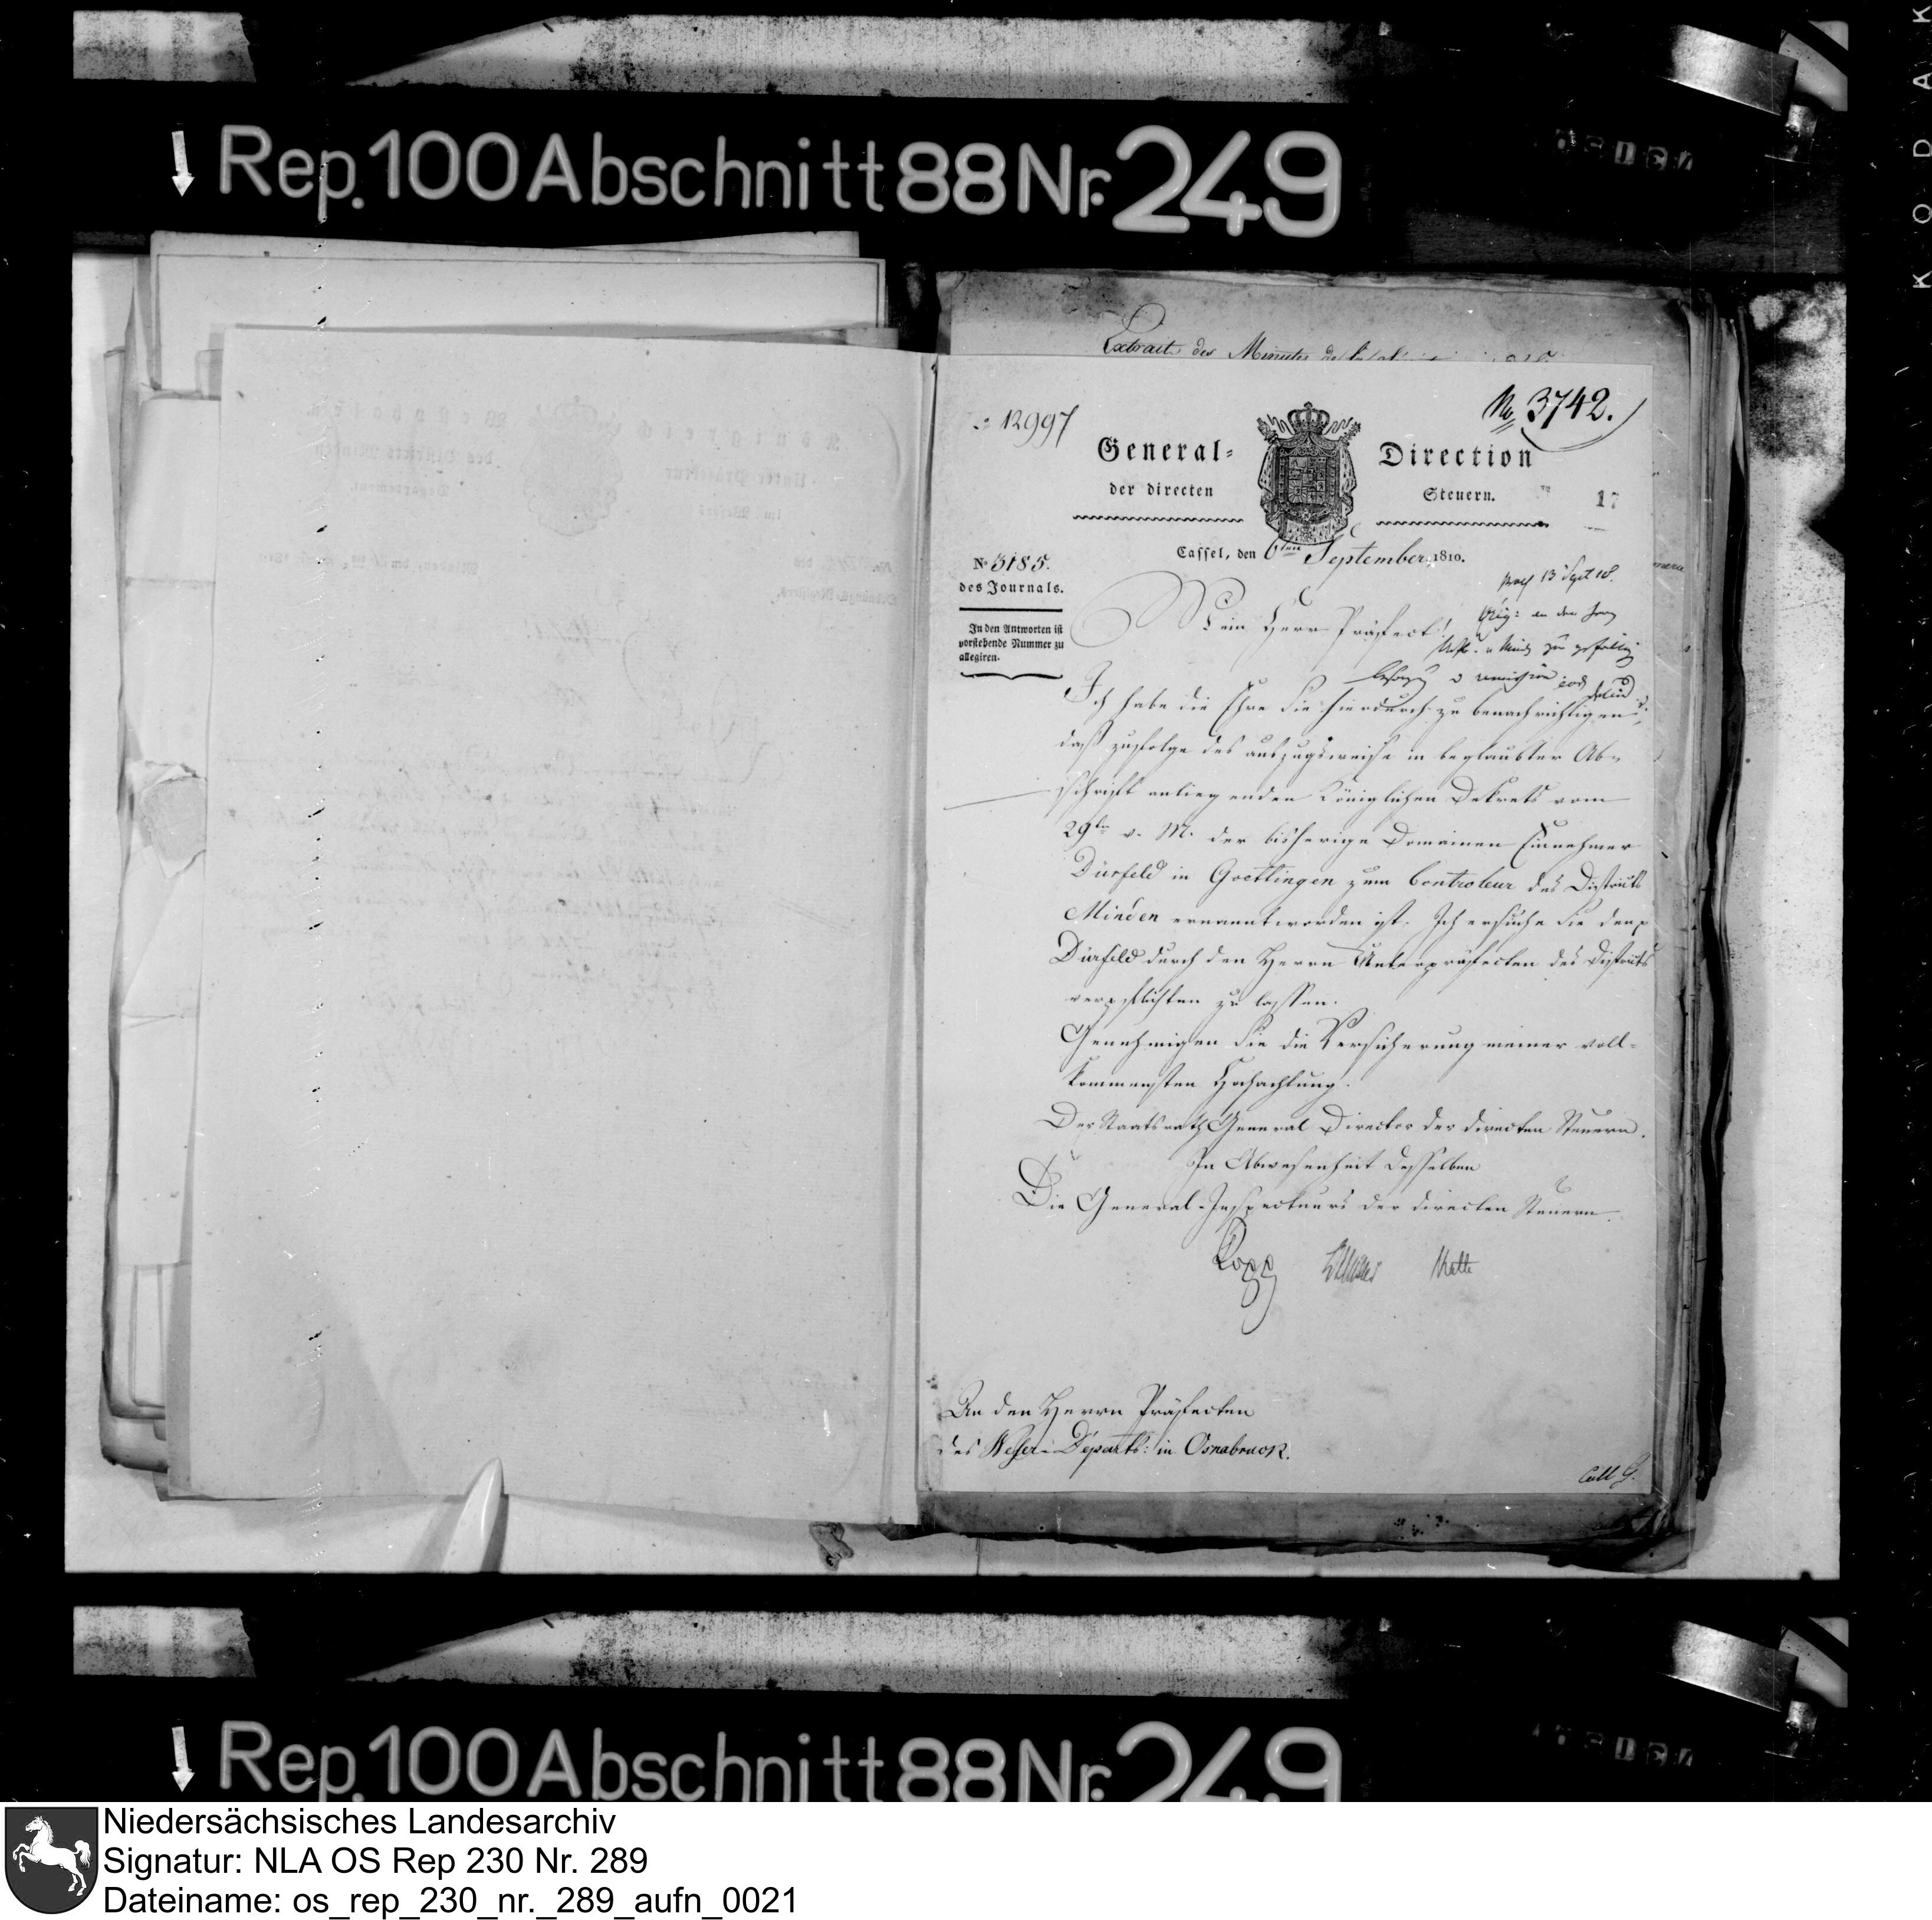 KODAK
Rep. 100 Abschnitt 88 Nr. 249
Extrait des Minutes de
: 12997
No 3742.
General= Direction
der directen Steuern.
17
Cassel, den 6ten September 1810.
No 5185.
des Journals.
In den Antworten ist
vorstehende Nummer zu
allegiren.
praes 13 Sept 10.
Orig: an den Herrn
zu gefälliger
remission
Mein Herr Präfect!
Ich habe die Ehre Sie hierdurch zu benachrichtigen,
daß zufolge des auszugsweise in beglaubter Ab=
schrift anliegenden Königlichen Dekrets vom
29ten v. M. der bisherige Domainen Einnehmer
Dürfeld in Goettingen zum Controleur des Districts
Minden ernannt worden ist. Ich ersuche Sie den p
Dürfeld durch den Herrn Unterpräfecten des Districts
verpflichten zu lassen.
Genehmigen Sie die Versicherung meiner voll=
kommensten Hochachtung.
Der Staatsrath General Director der directen Steuern.
In Abwesenheit desselben
Die General-Inspecteurs der directen Steuern.
Kopp
An den Herrn Präfecten
des Weser-Departs: in Osnabruck.
Coll G.
Rep. 100 Abschnitt 88 Nr. 249
Niedersächsisches Landesarchiv
Signatur: NLA OS Rep 230 Nr. 289
Dateiname: os_rep_230_nr._289_aufn_0021